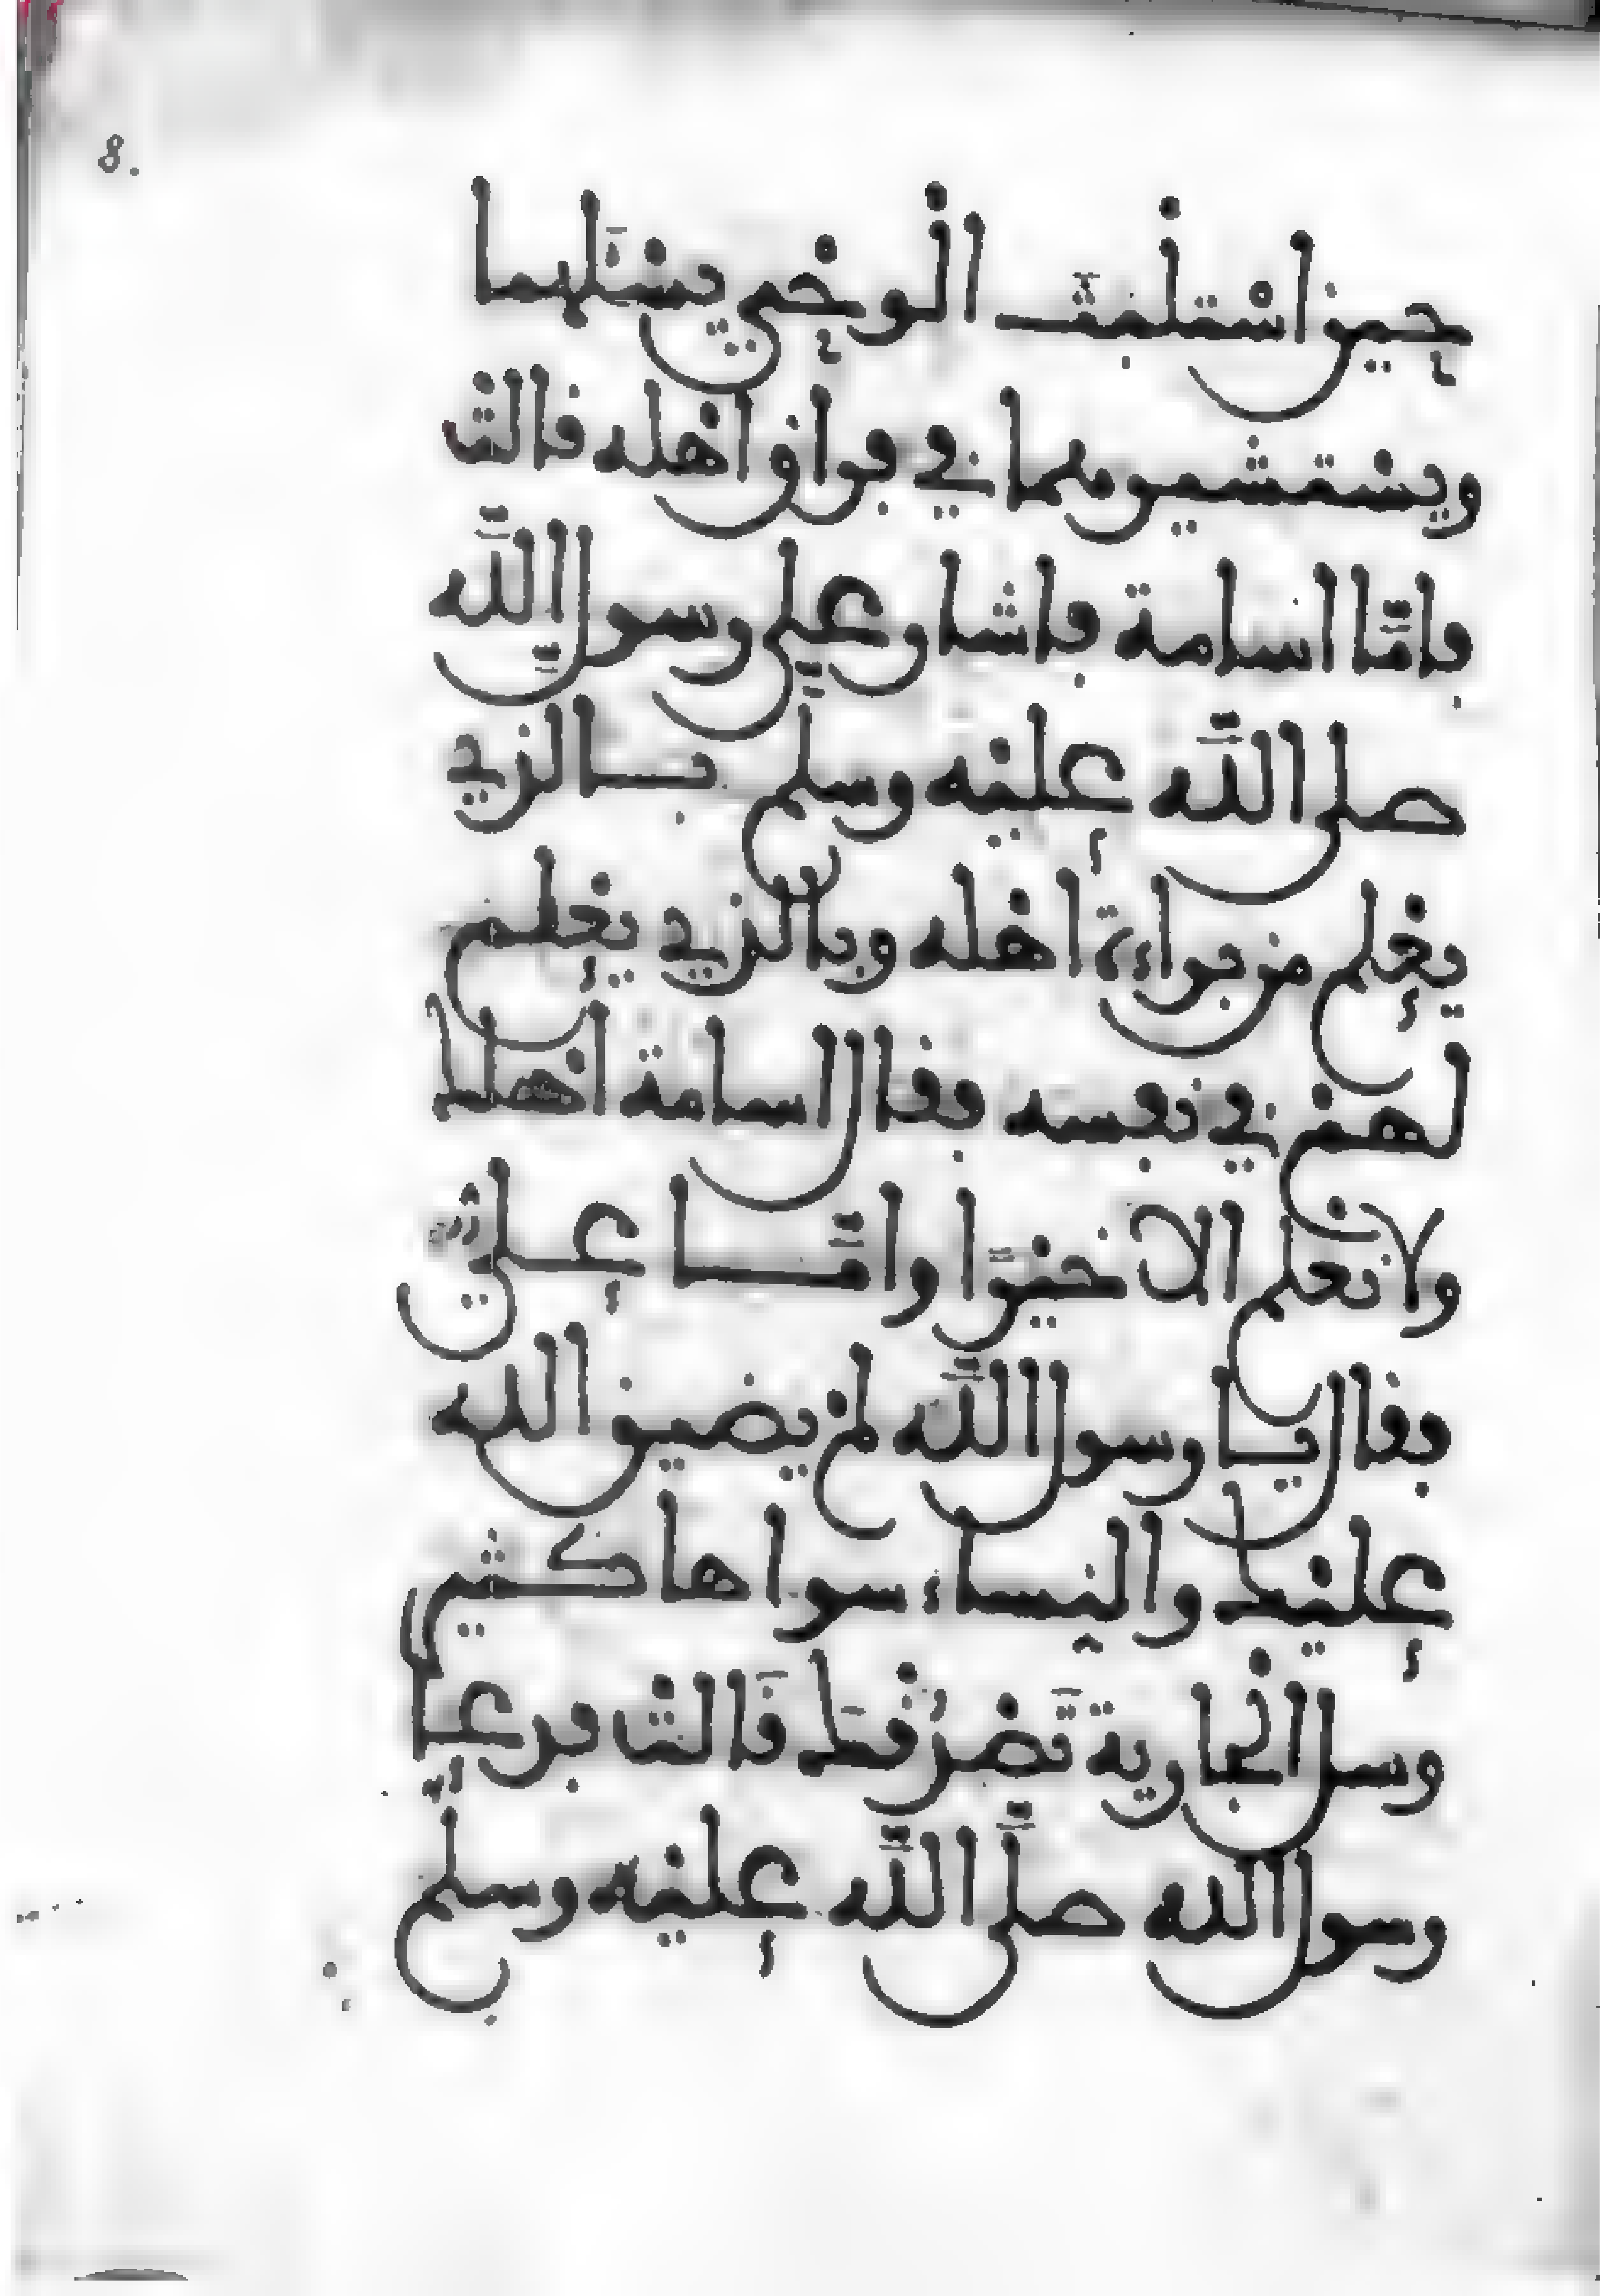 8.
حين استلبث الوحي يسلهما
ويستشيرهما في فراق اهله قالت
فامّا اسامة فاشار على رسول اللّه
صلى اللّه عليه وسلم بالذي
يعلم من براءة اهله وبالذي يعلم
لهم في نفسه فقال اسامة اهلك
ولا نعلم الا خيرًا وامّا علي
فقال يا رسول اللّه لم يضيق الله
عليك والنساء سواها كثير
وسل الجارية تَصْدُقْكَ قَالت فدعا
رسول الله صلّى اللّه عليه وسلم